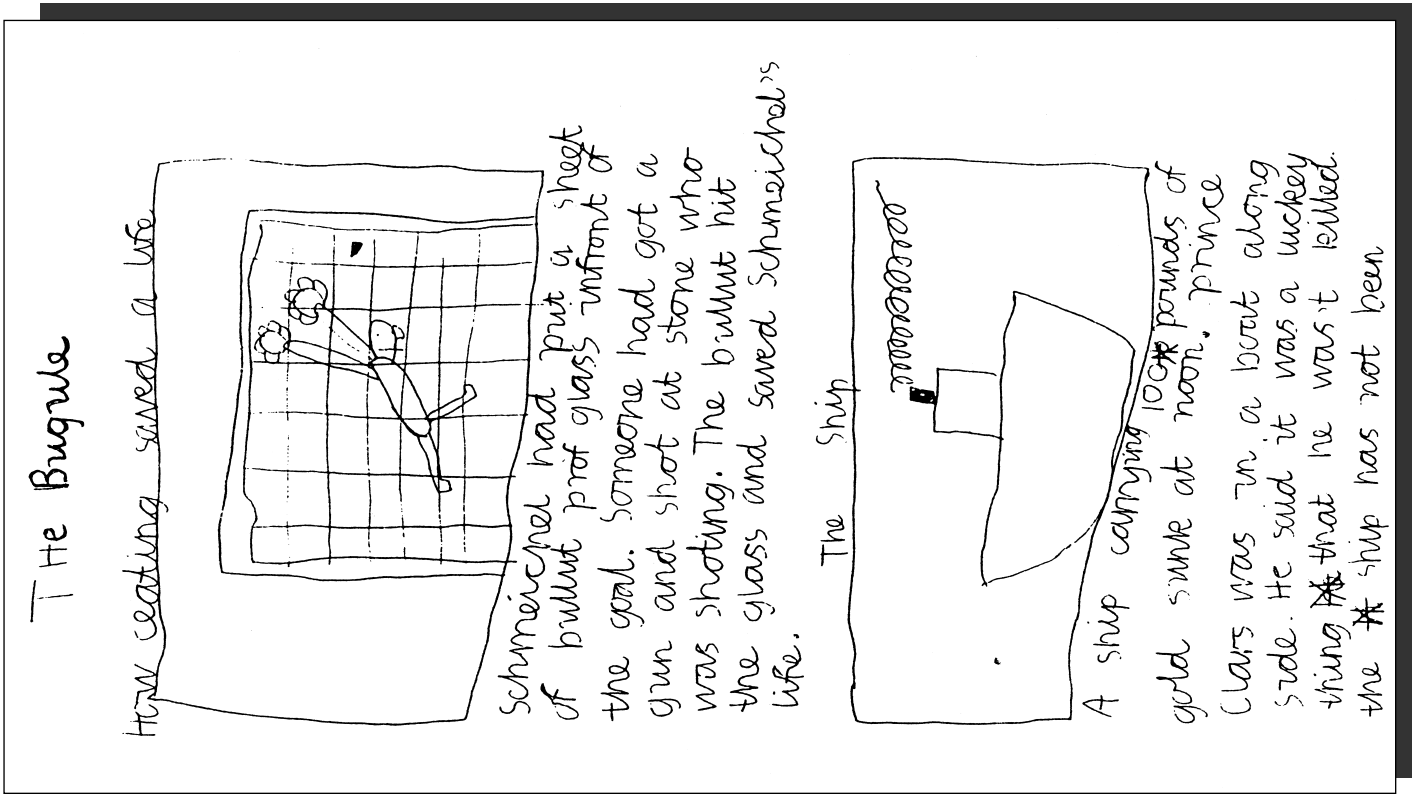 THe Bugule
How ceating saved a life
Schmeichel had put a sheet
of bullut prof glass infront of
the goal. Someone had got a
gun and shot at stone who
was shoting. The bullut hit
the glass and saved Schmeichel's
life.
The Ship
A ship carrying 100 pounds of
gold sunk at noon. prince
Clars was in a boat along
side. He said it was a luckey
thing that he was't killed.
the ship has not been